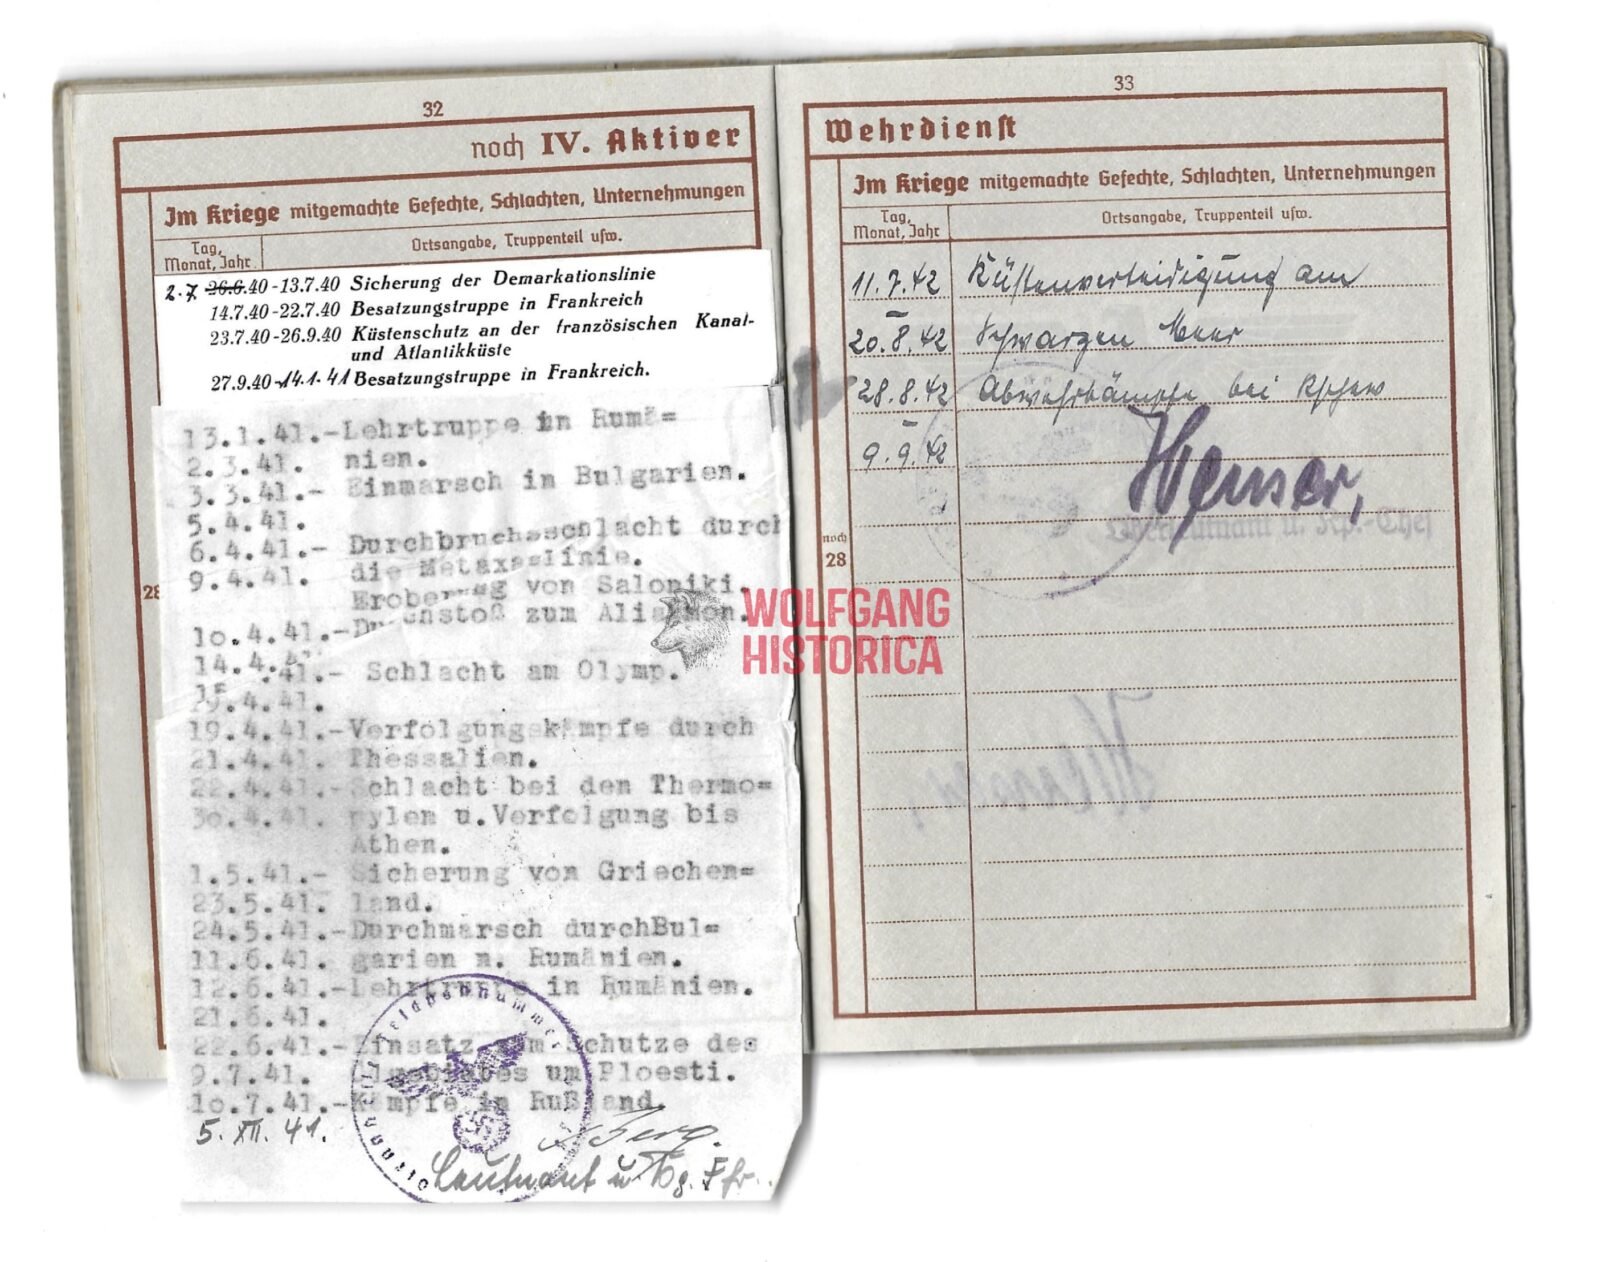 32
noch IV. Aktiver
Im Kriege mitgemachte Gefechte, Schlachten, Unternehmungen
Tag, Monat, Jahr
Ortsangabe, Truppenteil usw.
2.7 26.6.40-13.7.40 Sicherung der Demarkationslinie
14.7.40-22.7.40 Besatzungstruppe in Frankreich
23.7.40-26.9.40 Küstenschutz an der französischen Kanal-
und Atlantikküste
27.9.40-14.1.41 Besatzungstruppe in Frankreich.
13.1.41.-Lehrtruppe in Rumä=
2.3.41. nien.
3.3.41.- Einmarsch in Bulgarien.
5.4.41.
6.4.41.- Durchbruchsschlacht durch
9.4.41. die Metaxaslinie.
Eroberung von Saloniki.
10.4.41.-Durchstoß zum Aliakmon.
14.4.41.- Schlacht am Olymp.
.4.41.
19.4.41.-Verfolgungskämpfe durch
21.4.41. Thessalien.
22.4.41.-Schlacht bei den Thermo=
30.4.41. pylen u.Verfolgung bis
Athen.
1.5.41.- Sicherung von Griechen=
23.5.41. land.
24.5.41.-Durchmarsch durchBul=
11.6.41. garien n. Rumänien.
12.6.41.-Lehrtruppe in Rumänien.
21.6.41.
22.6.41.-Einsatz zum Schutze des
9.7.41. Ölgebietes um Ploesti.
10.7.41.-Kämpfe in Rußland.
5.XII.41.
Leutnant u.
28
33
Wehrdienst
Im Kriege mitgemachte Gefechte, Schlachten, Unternehmungen
Tag, Monat, Jahr
Ortsangabe, Truppenteil usw.
11.7.42 Küstenverteidigung am
20.8.42 Schwarzen Meer
28.8.42 Abwehrkämpfe bei Rschew
9.9.42
Oberleutnant u. Kp.-Chef
noch
28
WOLFGANG
HISTORICA